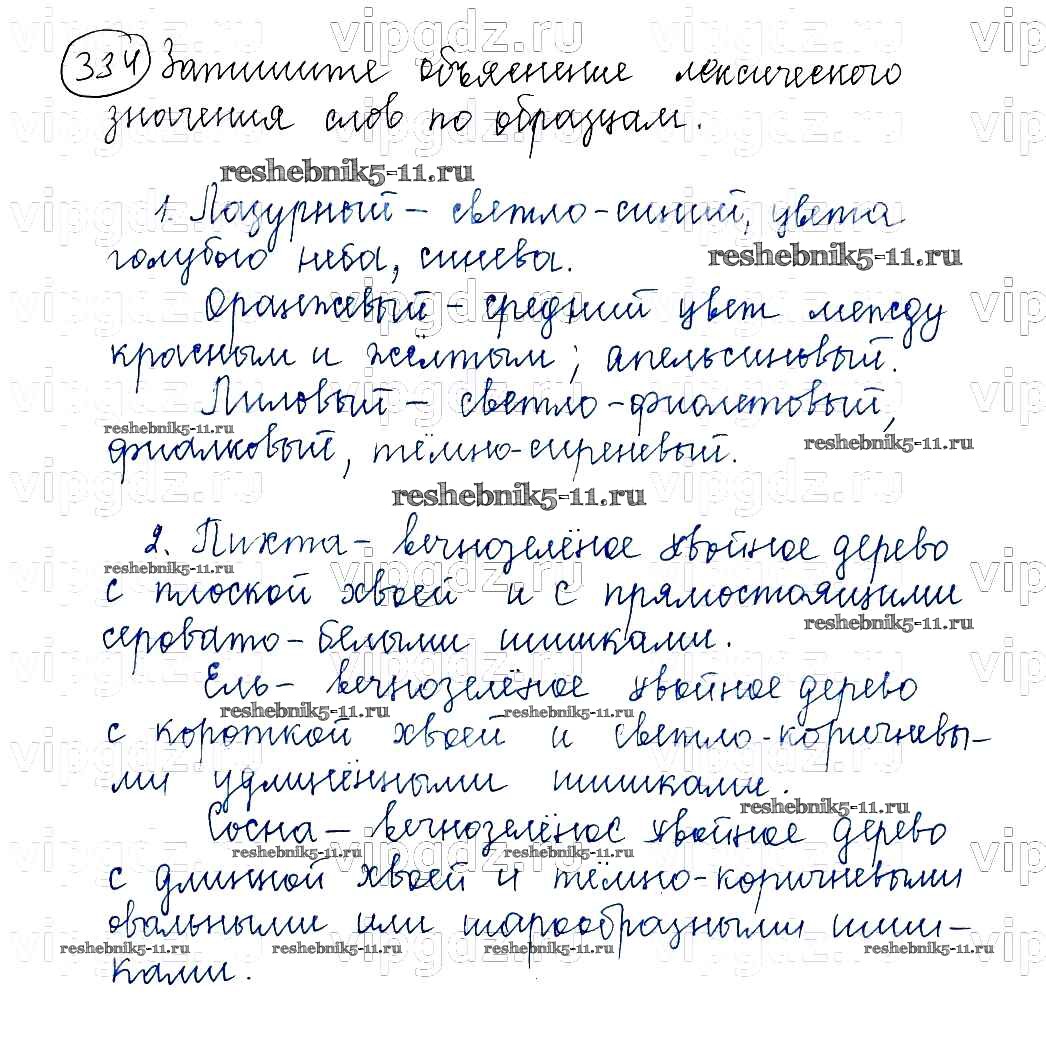 334 Запишите объяснение лексического
значения слов по образцам.
reshebnik5-11.ru
1. Лазурный – светло-синий, цвета
голубого неба, синева.
reshebnik5-11.ru
Оранжевый – средний цвет между
красным и жёлтым; апельсиновый.
Лиловый – светло-фиолетовый,
reshebnik5-11.ru reshebnik5-11.ru
фиалковый, тёмно-сиреневый.
reshebnik5-11.ru
2. Пихта – вечнозелёное хвойное дерево
reshebnik5-11.ru
с плоской хвоей и с прямостоящими
reshebnik5-11.ru
серовато-белыми шишками.
Ель – вечнозелёное хвойное дерево
reshebnik5-11.ru reshebnik5-11.ru
с короткой хвоей и светло-коричневы-
ми удлинёнными шишками.
reshebnik5-11.ru
Сосна – вечнозелёное хвойное дерево
reshebnik5-11.ru reshebnik5-11.ru
с длинной хвоей и тёмно-коричневыми
овальными или шарообразными шиш-
reshebnik5-11.ru reshebnik5-11.ru reshebnik5-11.ru reshebnik5-11.ru
ками.
vipgdz.ru